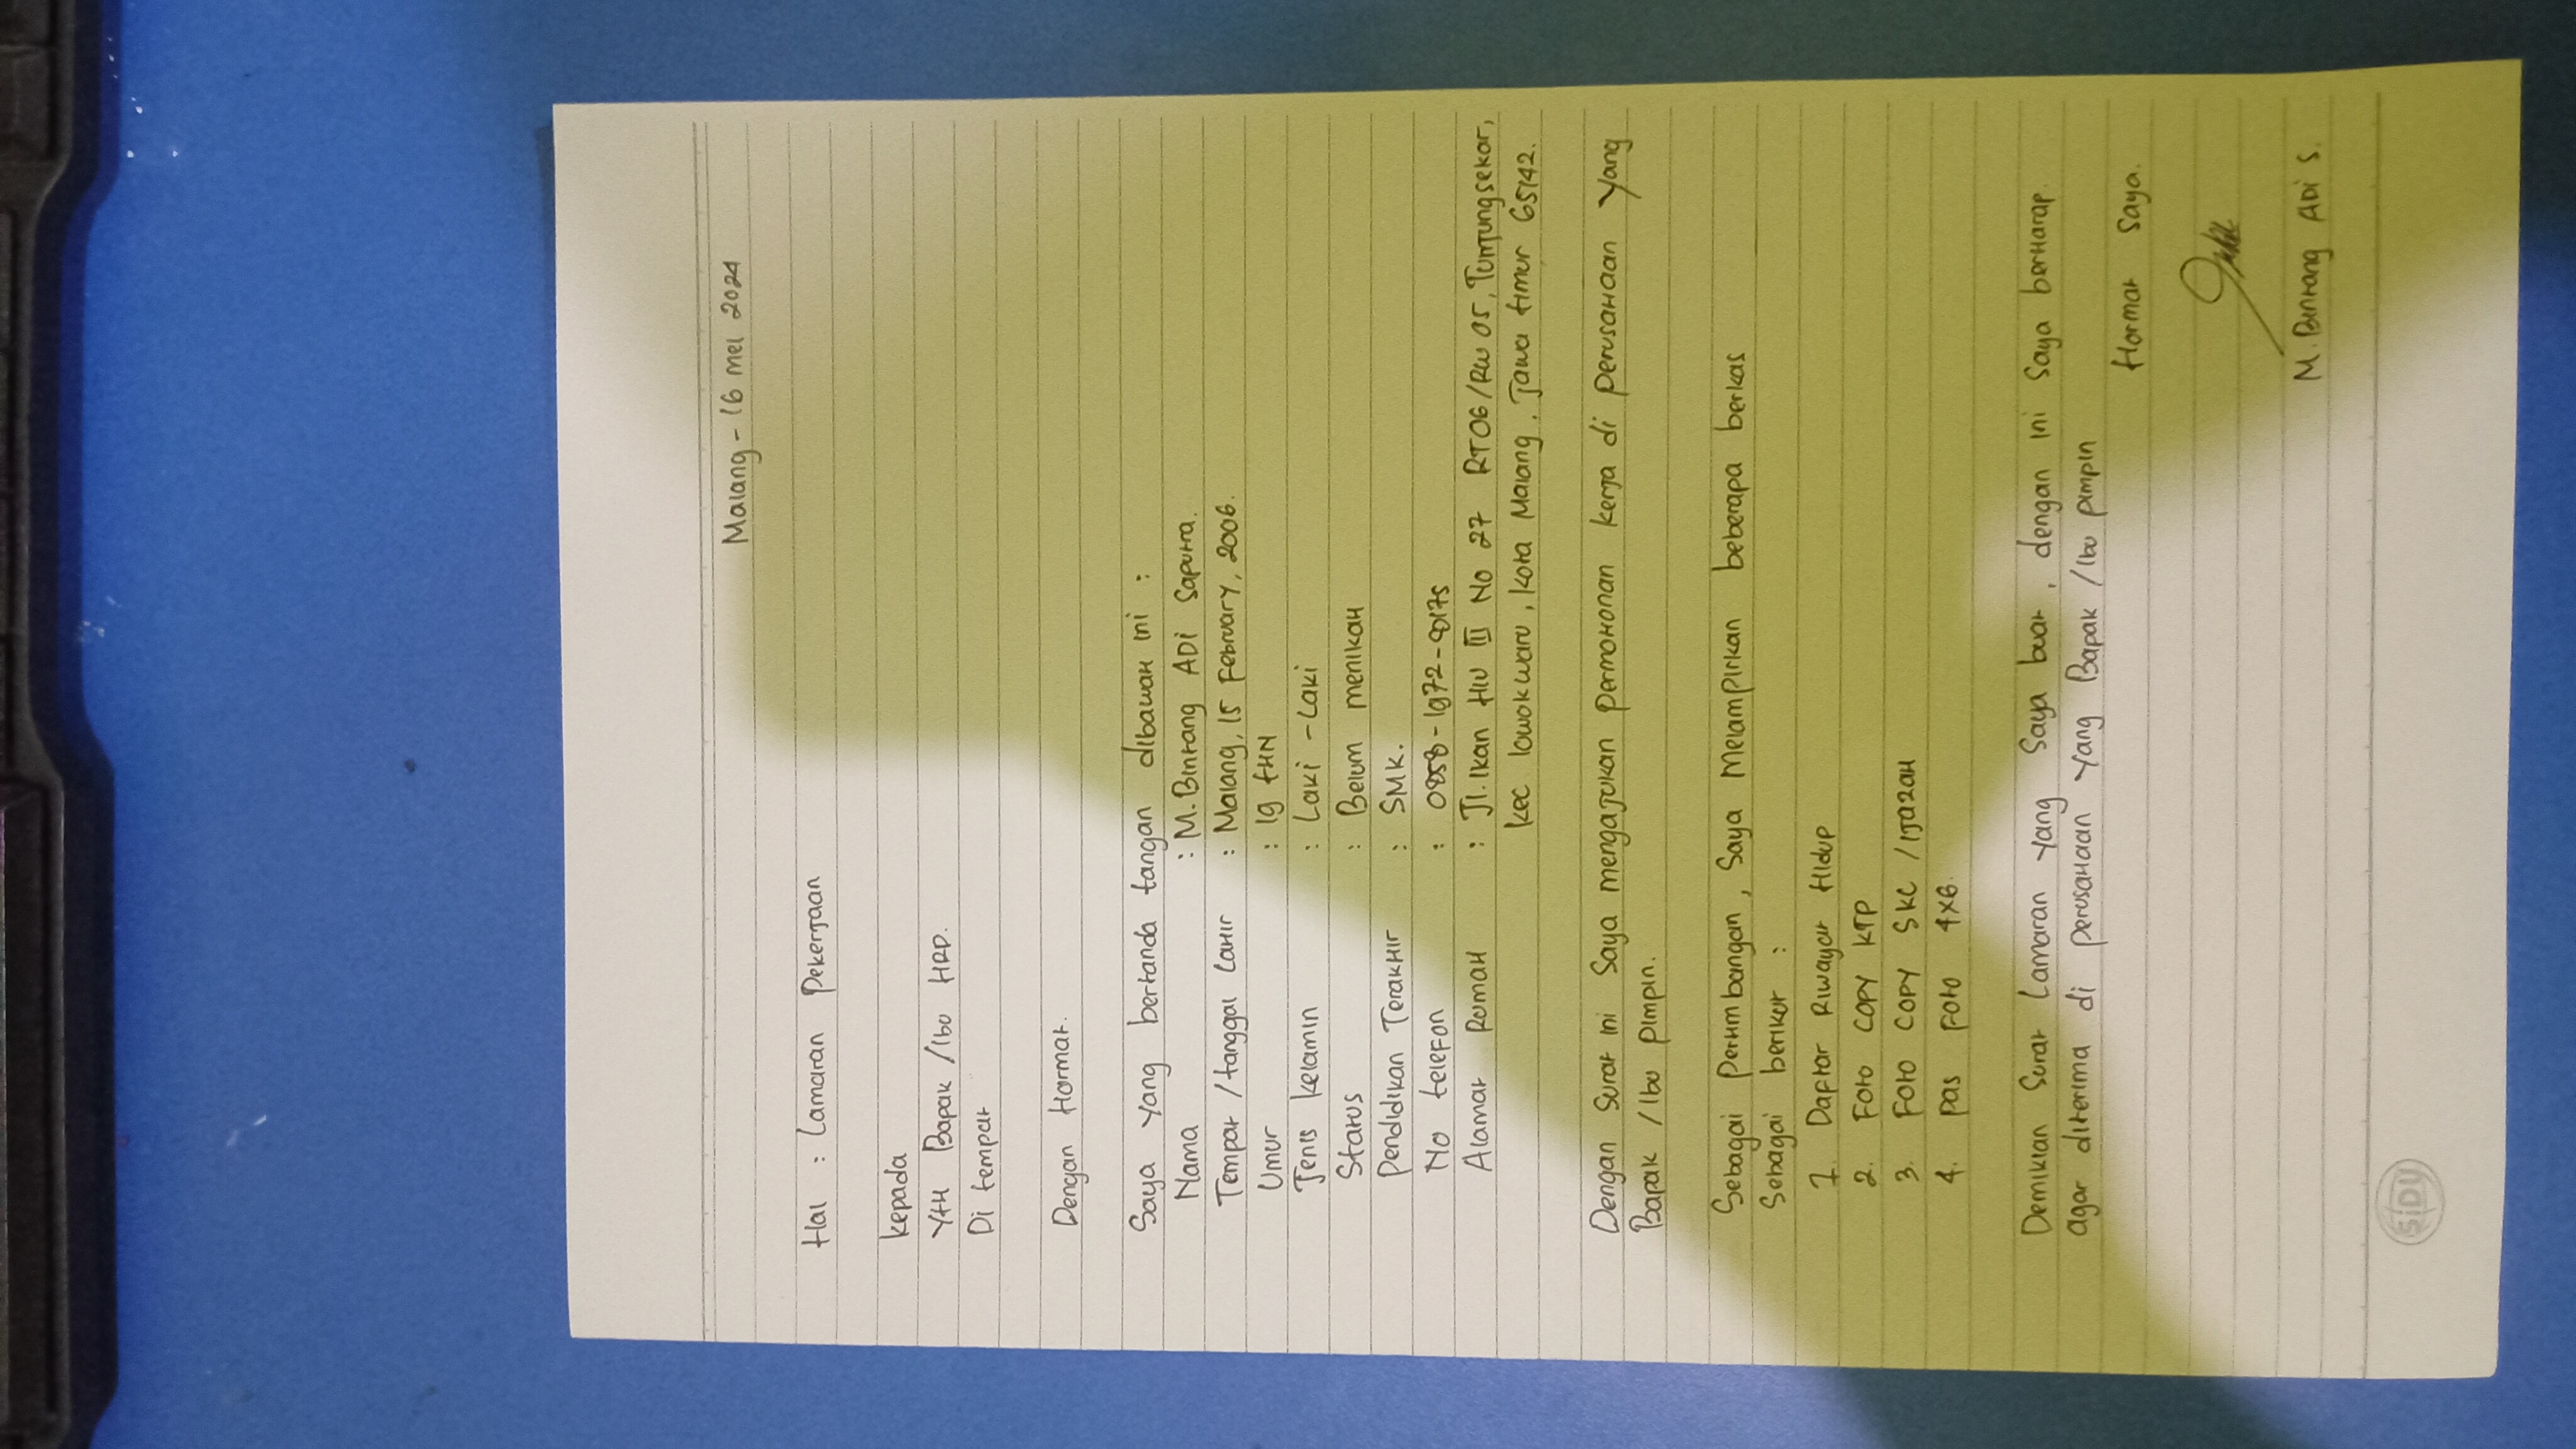 Malang - 16 mei 2024
Hal : Lamaran Pekerjaan
Kepada
YtH Bapak / Ibu HRD.
Di tempat
Dengan Hormat.
Saya yang bertanda tangan dibawaH ini :
Nama : M. Bintang ADi Saputra.
Tempat / tanggal LaHir : Malang, 15 February, 2006.
Umur : 19 tHN
Jenis kelamin : Laki - Laki
Status : Belum menikaH
Pendidikan TerakHir : SMK.
No telefon
Alamat RumaH : Jl. Ikan Hiu III No 27 RT06/RW 05, Tunjungsekar,
Kec lowokwaru, Kota Malang, Jawa timur 65142.
Dengan Surat ini Saya mengajukan permoHonan kerja di perusaHaan Yang
Bapak / Ibu Pimpin.
Sebagai Pertimbangan, Saya Melampirkan beberapa berkas
Sebagai berikut :
1. Daftar Riwayat Hidup
2. Foto COPY KTP
3. Foto COPY SKL / IjazaH
4. Pas Foto 4x6.
Demikian Surat Lamaran Yang Saya buat, dengan ini Saya berHarap.
agar diterima di perusaHaan Yang Bapak / Ibu Pimpin
Hormat Saya.
M. Bintang ADi S.
SIDU